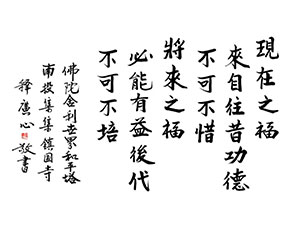 現在之福
來自往昔功德
不可不惜
將來之福
必能有益後代
不可不培
佛院舍利世界和平塔
南投集集鎮國寺
釋廣心敬書